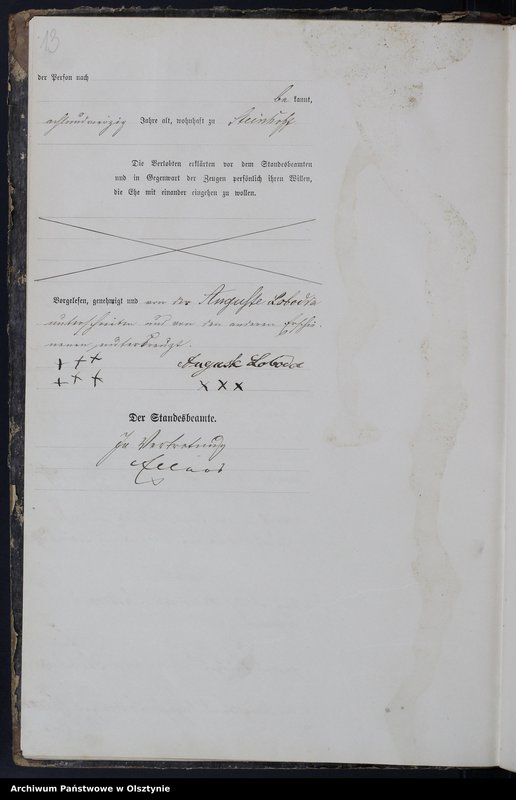 13
der Person nach
be kannt,
achtundvierzig Jahre alt, wohnhaft zu Steinhof
Die Verlobten erklärten vor dem Standesbeamten
und in Gegenwart der Zeugen persönlich ihren Willen,
die Ehe mit einander eingehen zu wollen.
Vorgelesen, genehmigt und von der Auguste Lobodda
unterschrieben und von den anderen Erschie-
nenen unterkreuzt.
+ + + August Lobodda
+ + + X X X
Der Standesbeamte.
In Vertretung
Archiwum Państwowe w Olsztynie